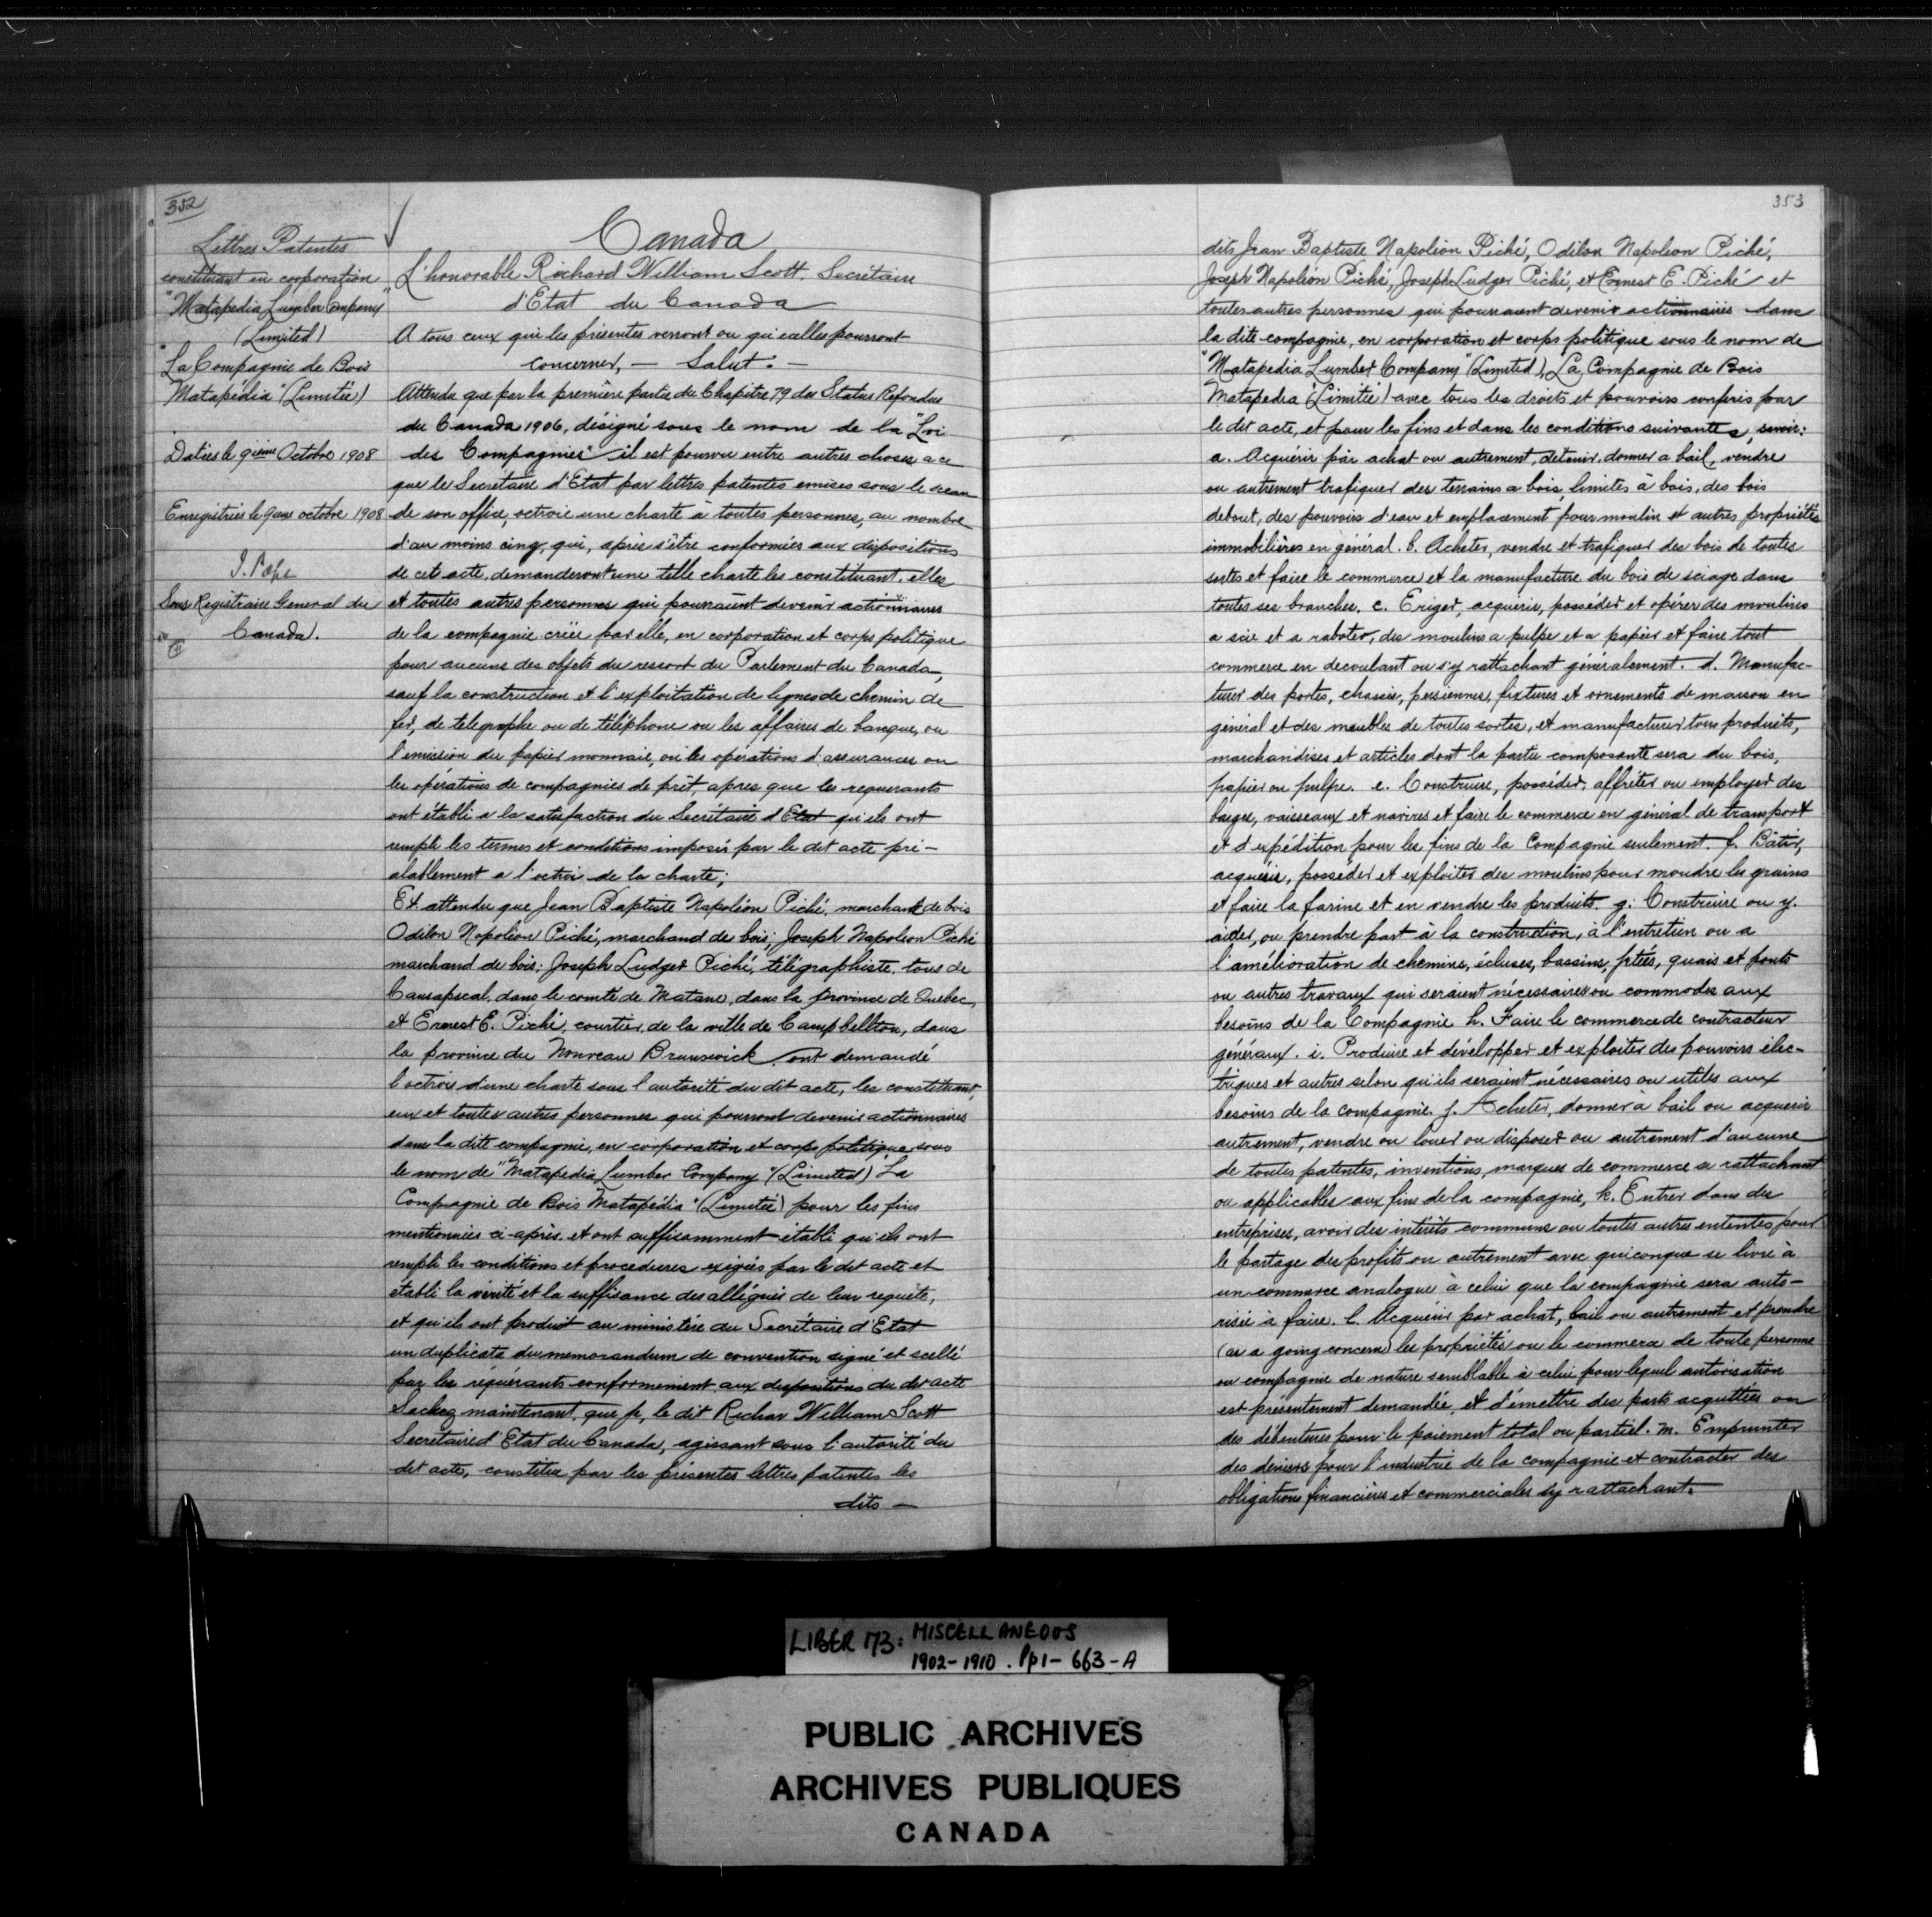 352
Lettres Patentes
constituant en corporation
"Matapedia Lumber Company"
(Limited)
"La Compagnie de Bois
Matapédia" (Limitée)
Datées le 9ième Octobre 1908
Enregistrées le 9ème octobre 1908
J. Pope
Sous Registraire General du
Canada.
Canada
L'honorable Richard William Scott Secrétaire
d'Etat du Canada
A tous ceux qui les présentes verront ou qu'icelles pourront
concerner, — Salut: —
Attendu que par la première partie du Chapitre 79 des Statuts Refondus
du Canada 1906, désigné sous le nom de la "Loi
des Compagnies" il est pourvu entre autres choses a ce
que le Secrétaire d'Etat par lettres patentes emises sous le sceau
de son office, octroie une charte à toutes personnes, au nombre
d'au moins cinq, qui, après s'être conformées aux dispositions
de cet acte, demanderont une telle charte les constituant, elles
et toutes autres personnes qui pourraient devenir actionnaires
de la compagnie créée par elle, en corporation et corps politique
pour aucuns des objets du ressort du Parlement du Canada,
sauf la construction et l'exploitation de lignes de chemin de
fer, de telegraphe ou de téléphone ou les affaires de banque, ou
l'emission du papier monnaie, ou les opérations d'assurances ou
les opérations de compagnies de prêt, apres que les requerants
ont établi a la satisfaction du Secrétaire d'Etat qu'ils ont
rempli les termes et conditions imposés par le dit acte pré-
alablement a l'octroi de la charte;
Et attendu que Jean Baptiste Napoléon Piché, marchand de bois
Odilon Napoléon Piché, marchand de bois; Joseph Napoleon Piché
marchand de bois: Joseph Ludger Piché, télégraphiste, tous de
Causapscal, dans le comté de Matane, dans la province de Quebec,
et Ernest E. Piché, courtier, de la ville de Campbellton, dans
la province du Nouveau Brunswick ont demandé
l'octroi d'une charte sous l'autorité du dit acte, les constituant,
eux et toutes autres personnes qui pourront devenir actionnaires
dans la dite compagnie, en corporation et corps politique sous
le nom de "Matapedia Lumber Company" (Limited) "La
Compagnie de Bois Matapédia" (Limitée) pour les fins
mentionnées ci-après, et ont suffisamment établi qu'ils ont
rempli les conditions et procedures exigées par le dit acte et
établi la vérité et la suffisance des allégués de leur requête,
et qu'ils ont produit au ministère du Secrétaire d'Etat
un duplicata du memorandum de convention signé et scellé
par les réquérants conformement aux dispositions du dit acte
Sachez maintenant, que je, le dit Richar William Scott
Secrétaire d'Etat du Canada, agissant sous l'autorité du
dit acte, constitue par les présentes lettres patentes les
dits —
353
dits Jean Baptiste Napoléon Piché, Odilon Napoleon Piché,
Joseph Napoléon Piché, Joseph Ludger Piché, et Ernest E. Piché et
toutes autres personnes qui pourraient devenir actionnaires dans
la dite compagnie, en corporation et corps politique sous le nom de
"Matapedia Lumber Company" (Limited), La Compagnie de Bois
Matapedia (Limitée) avec tous les droits et pouvoirs conférés par
le dit acte, et pour les fins et dans les conditions suivantes, savoir:
a. Acquérir par achat ou autrement, detenir, donner a bail, vendre
ou autrement trafiquer des terrains a bois, limites à bois, des bois
debout, des pouvoirs d'eau et emplacement pour moulin et autres propriétés
immobilières en général. b. Acheter, vendre et trafiquer des bois de toutes
sortes et faire le commerce et la manufacture du bois de sciage dans
toutes ses branches. c. Eriger, acquerir, posséder et opérer des moulins
a scie et a raboter, des moulins a pulpe et a papier et faire tout
commerce en decoulant ou s'y rattachant généralement. d. Manufac-
turer des portes, chassis, persiennes, fixtures et ornements de maison en
général et des meubles de toutes sortes, et manufacturer tous produits,
marchandises et articles dont la partie composante sera du bois,
papier ou pulpe. e. Construire, posséder, affréter ou employer des
barges, vaisseaux et navires et faire le commerce en général de transport
et d'expédition pour les fins de la Compagnie seulement. f. Bâtir,
acquérir, posséder et exploiter des moulins pour moudre les grains
et faire la farine et en vendre les produits. g. Construire ou y
aider, ou prendre part à la construction, à l'entretien ou a
l'amélioration de chemins, écluses, bassins, jetées, quais et ponts
ou autres travaux qui seraient nécessaires ou commodes aux
besoins de la Compagnie h. Faire le commerce de contracteur
généraux. i. Produire et développer et exploiter des pouvoirs élec-
triques et autres selon qu'ils seraient nécessaires ou utiles aux
besoins de la compagnie. j. Acheter, donner à bail ou acquerir
autrement, vendre ou louer ou disposer ou autrement d'aucune
de toutes patentes, inventions, marques de commerce se rattachant
ou applicables aux fins de la compagnie, k. Entrer dans des
entreprises, avoir des intérêts communs ou toutes autres ententes pour
le partage des profits ou autrement avec quiconque se livre à
un commerce analogue à celui que la compagnie sera auto-
risée à faire. l. Acquérir par achat, bail ou autrement et prendre
(as a going concern) les propriétés ou le commerce de toute personne
ou compagnie de nature semblable à celui pour lequel autorisation
est présentement demandée, et d'émettre des parts acquittées ou
des débentures pour le paiement total ou partiel. m. Emprunter
des deniers pour l'industrie de la compagnie et contracter des
obligations financières et commerciales s'y rattachant.
LIBER 173: MISCELLANEOUS
1902-1910. Pp 1-663-A
PUBLIC ARCHIVES
ARCHIVES PUBLIQUES
CANADA